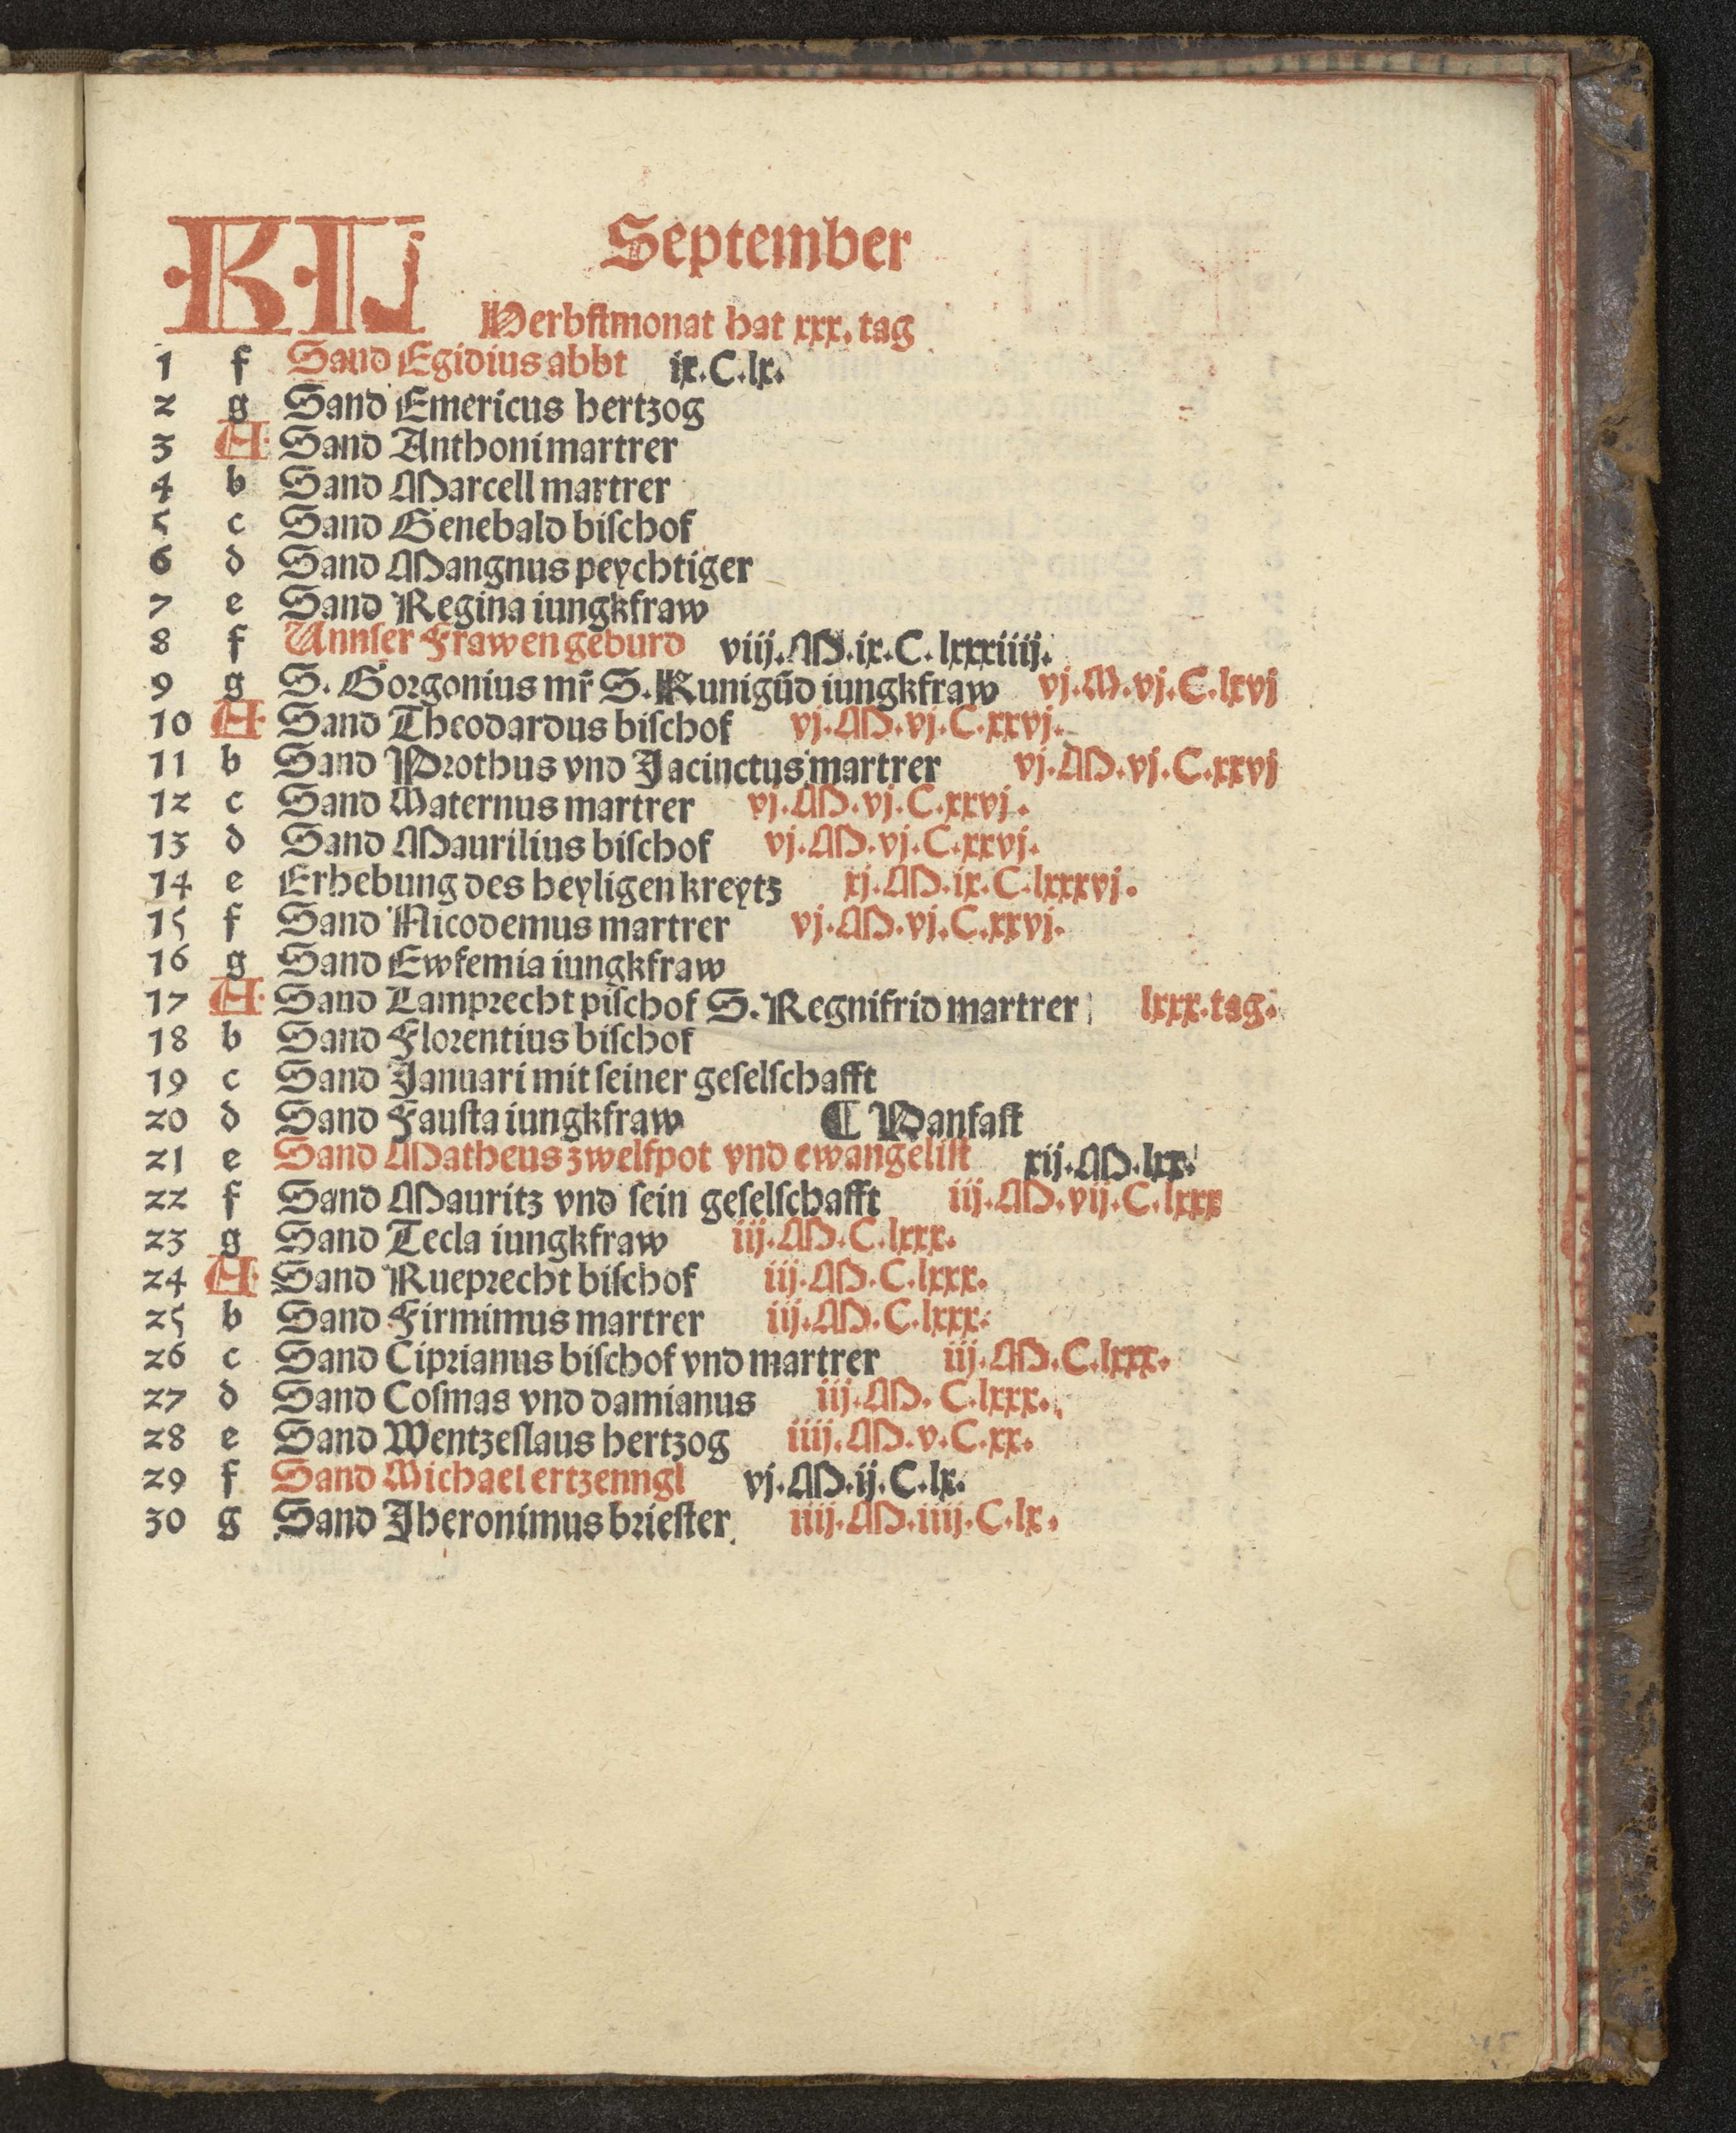 KL September
Herbſtmonat hat xxx. tag
1 f Sand Egidius abbt ix.C.lx.
2 g Sand Emericus hertzog
3 A Sand Anthoni martrer
4 b Sand Marcell martrer
5 c Sand Genebald biſchof
6 d Sand Mangnus peychtiger
7 e Sand Regina iungkfraw
8 f Unnſer Frawen geburd viij.M.ix.C.lxxxiiij.
9 g S. Gorgonius mr̃ S. Kunigūd iungkfraw vj.M.vj.C.lxvj
10 A Sand Theodardus biſchof vj.M.vj.C.xxvj.
11 b Sand Prothus vnd Jacinctus martrer vj.M.vj.C.xxvj
12 c Sand Maternus martrer vj.M.vj.C.xxvj.
13 d Sand Maurilius biſchof vj.M.vj.C.xxvj.
14 e Erhebung des heyligen kreytz xj.M.ix.C.lxxxvj.
15 f Sand Nicodemus martrer vj.M.vj.C.xxvj.
16 g Sand Ewfemia iungkfraw
17 A Sand Lamprecht piſchof S. Regnifrid martrer lxxx.tag.
18 b Sand Florentius biſchof
19 c Sand Januari mit ſeiner geſelſchafft
20 d Sand Fauſta iungkfraw ¶ Panfaſt
21 e Sand Matheus zwelfpot vnd ewangeliſt xij.M.lxx.
22 f Sand Mauritz vnd ſein geſelſchafft iij.M.vij.C.lxxx
23 g Sand Tecla iungkfraw iij.M.C.lxxx.
24 A Sand Rueprecht biſchof iij.M.C.lxxx.
25 b Sand Firmimus martrer iij.M.C.lxxx.
26 c Sand Ciprianus biſchof vnd martrer iij.M.C.lxxx.
27 d Sand Coſmas vnd damianus iij.M.C.lxxx.
28 e Sand Wentzeſlaus hertzog iiij.M.v.C.xx.
29 f Sand Michael ertzenngl vj.M.ij.C.lx.
30 g Sand Jheronimus brieſter iiij.M.iiij.C.lx.